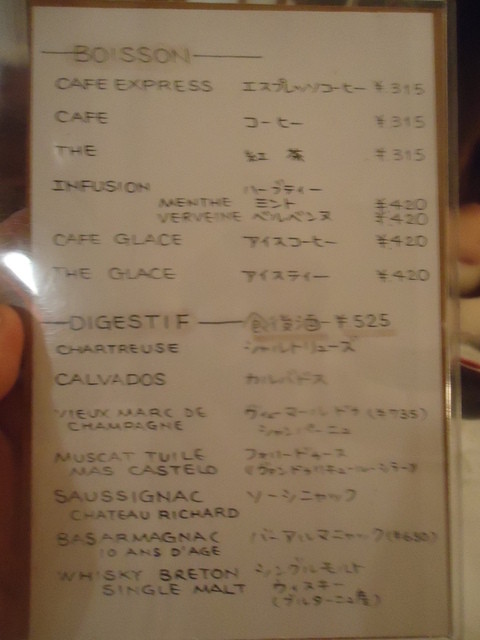 BOISSON
CAFE EXPRESS エスプレッソコーヒー ¥315
CAFE コーヒー ¥315
THE 紅茶 ¥315
INFUSION ハーブティー
MENTHE ミント ¥420
VERVEINE ベルベンヌ ¥420
CAFE GLACE アイスコーヒー ¥420
THE GLACE アイスティー ¥420
DIGESTIF 食後酒 ¥525
CHARTREUSE シャルトリューズ
CALVADOS カルバドス
VIEUX MARC DE ヴィューマールドゥ (¥735)
CHAMPAGNE シャンパーニュ
MUSCAT TUILE
MAS CASTELO
SAUSSIGNAC ソーシニャック
CHATEAU RICHARD
BASARMAGNAC バーアルマニャック (¥630)
10 ANS D'AGE
WHISKY BRETON シングルモルト
SINGLE MALT ウィスキー
(ブルターニュ産)